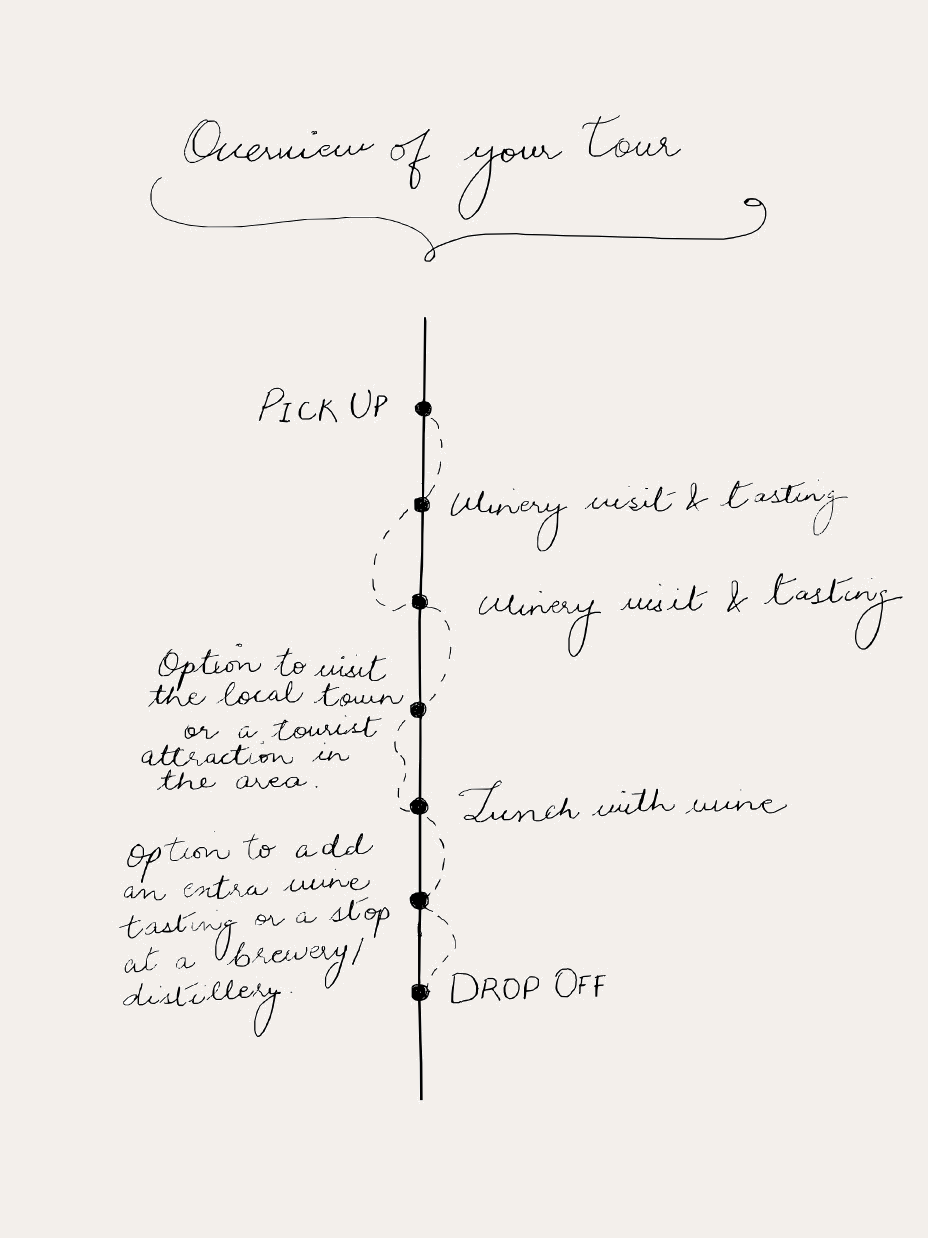 Overview of your tour
PICK UP
Winery visit & tasting
Winery visit & tasting
Option to visit
the local town
or a tourist
attraction in
the area.
Lunch with wine
Option to add
an extra wine
tasting or a stop
at a brewery/
distillery.
DROP OFF